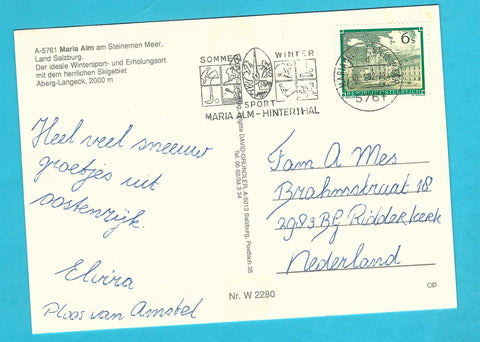 A-5761 Maria Alm am Steinernen Meer,
Land Salzburg.
Der ideale Wintersport- und Erholungsort
mit dem herrlichen Skigebiet
Aberg-Langeck, 2000 m
SOMMER WINTER
SPORT
MARIA ALM - HINTERTHAL
6 S
REPUBLIK ÖSTERREICH
5761
Heel veel sneeuw
groetjes uit
oostenrijk.
Elvira
Ploos van Amstel
Brigitte DAVID-GRÜNDLER, A-5013 Salzburg, Postfach 35
Fam A Mes
Brahmsstraat 18
2983 BG Ridderkerk
Nederland
Nr. W 2280
op